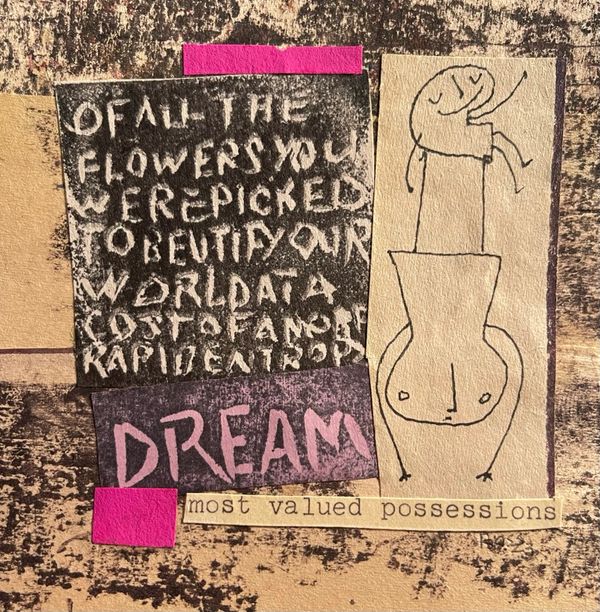 OF ALL THE
FLOWERS YOU
WERE PICKED
TO BEUTIFY OUR
WORLD AT A
COST OF A MORE
RAPID ENTROPY
DREAM
most valued possessions